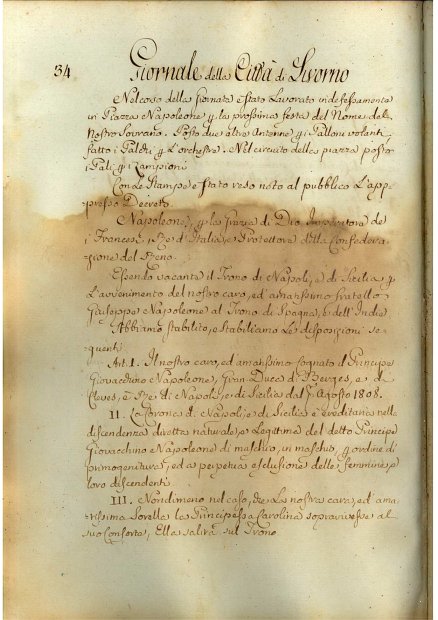 34 Giornale della Città di Livorno
Nel corso della giornata è stato Lavorato indefessamente
in Piazza Napoleone p. la prossima festa del Nome del
Nostro Sovrano. Posto due altre Antenne p. i Palloni volanti
fatto i Palchi p. L'orchestre. Nel circuito della piazza posto
i Pali p. i Lampioni
Con Le Stampe è stato reso noto al pubblico L'appe-
presso Decreto.
Napoleone p. la grazia di Dio Imperatore de
i Francesi, Re d'Italia, e Protettore della Confedera-
zione del Reno.
Essendo vacante il Trono di Napoli, e di Sicilia p.
L'avvenimento del nostro caro, ed amatissimo fratello
Giuseppe Napoleone al Trono di Spagna, e dell'Indie
Abbiamo stabilito, e stabiliamo Le disposizioni se-
quenti
Art. I. Il nostro caro, ed amatissimo cognato il Principe
Giovacchino Napoleone, Gran Duca di Berges, e di
Cleves, è Re di Napoli, e di Sicilia dal p. Agosto 1808.
II. La Corona di Napoli, e di Sicilia è ereditaria nella
discendenza diretta naturale, e Legittima del detto Principe
Giovacchino Napoleone di maschio, in maschio, p. ordine di
primogenitura, ed a perpetua esclusione delle femmine, e
loro discendenti
III. Nondimeno nel caso, che La nostra cara, ed ama-
tissima Sorella la Principessa Carolina sopravvivesse al
suo Consorte, Ella salirà sul Trono